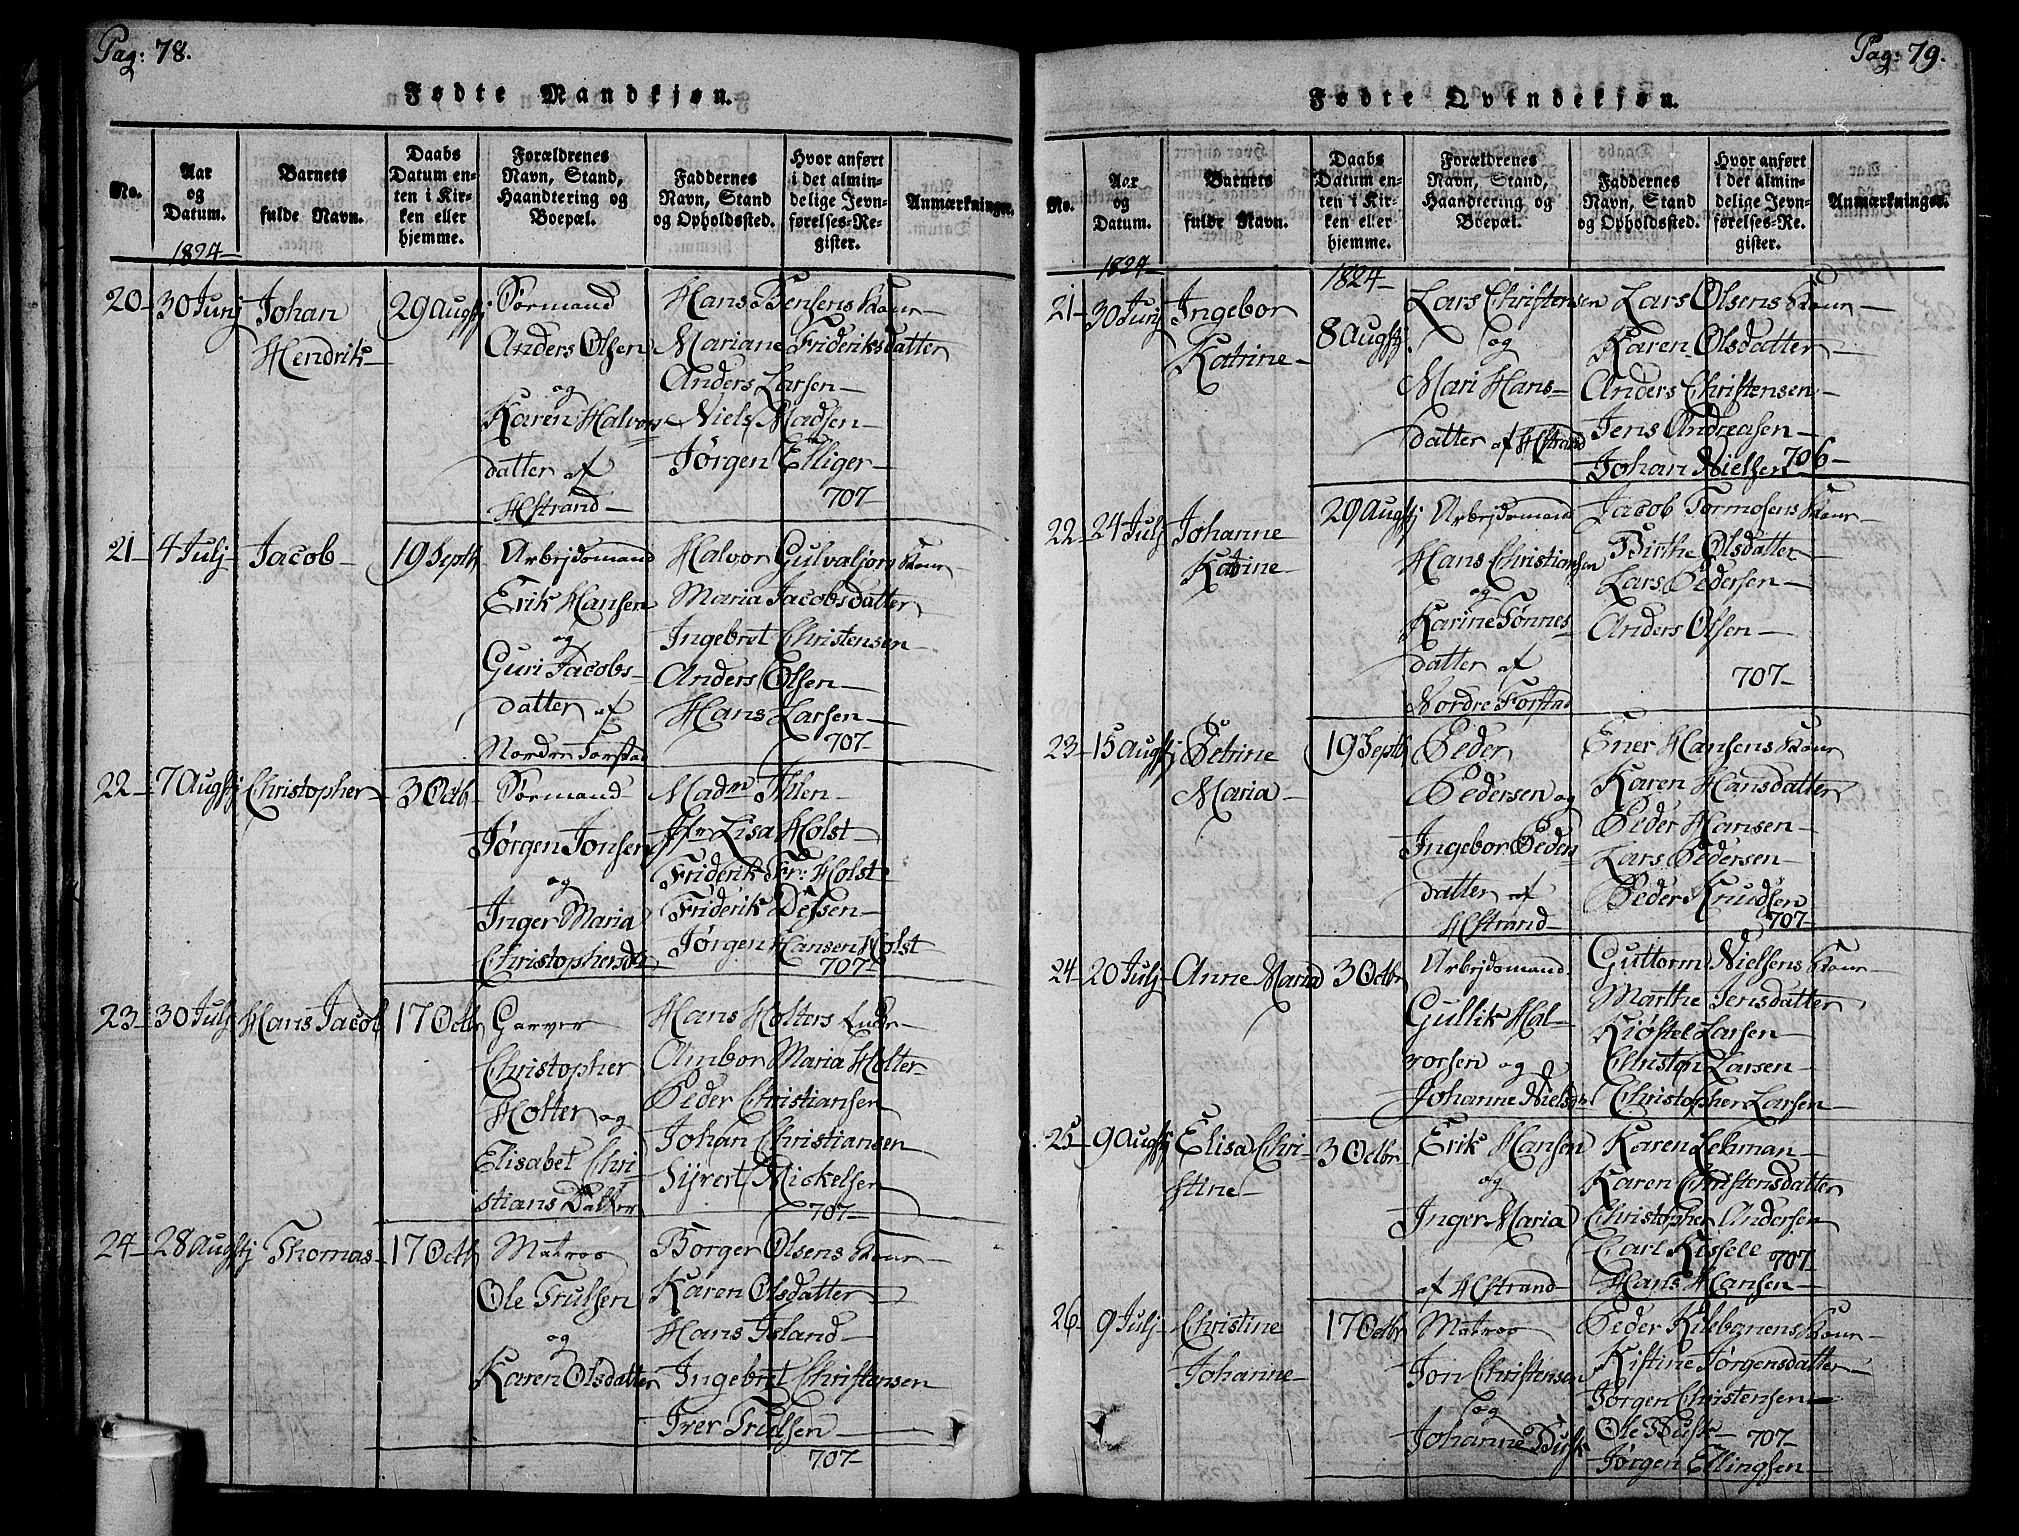 Pag: 78.
Fødte Mandkjøn.
No.
Aar
og
Datum.
1824
Barnets
fulde Navn.
Daabs
Datum en-
ten i Kir-
ken eller
hjemme.
Forældrenes
Navn, Stand,
Haandtering og
Boepæl.
Faddernes
Navn, Stand
og Opholdssted.
Hvor anført
i det almin-
delige Jevn-
førelses-Re-
gister.
Anmærkninger.
20 30 Junj Johan
Hendrik
29 Augstj
Sørmand
Anders Olsen
og
Karen Halvors
datter af
HStrand
Hans Bensens Kone
Mariane Frideriksdatter
Anders Larsen
Niels Madsen
Jørgen Elliger
707
21 4 Julj Jacob
19 Septb
Arbejdsmand
Erik Hansen
og
Guri Jacobs
datter af
Nordre Forstad
Halvor Kone
Maria Jacobsdatter
Ingebret Christensen
Anders Olsen
Hans Larsen
707
22 7 Augstj Christopher
3 Octb
Sørmand
Jørgen Jonsen
og
Inger Maria
Christophersdtr
Madm Ihlen
Jfr Lisa Holst
Friderik Fr: Holst
Friderik
Jørgen Hansen Holst
707
23 30 Julj Hans Jacob
17 Octbr
Garver
Christopher
Holter og
Elisabet Chri
stians Datter
Hans Holters
Maria Holter
Peder Christiansen
Johan Christiansen
Sivert Mickelsen
707
24 28 Augstj Thomas
17 Octb
Matros
Ole Trulsen
og
Karen Olsdatter
Borger Olsens Kone
Karen Olsdatter
Hans Island
Ingebret Christensen
Iver Trulsen
707
Pag: 79.
Fødte Qvindekjøn.
No.
Aar
og
Datum.
1824
Barnets
fulde Navn.
Daabs
Datum en-
ten i Kir-
ken eller
hjemme.
1824
Forældrenes
Navn, Stand,
Haandtering og
Boepæl.
Faddernes
Navn, Stand
og Opholdssted.
Hvor anført
i det almin-
delige Jevn-
førelses-Re-
gister.
Anmærkninger.
21 30 Junj Ingebor
Katrine
8 Augstj
Lars Christensen
og
Mari Hans
datter af HStrand
Lars Olsens Kone
Karen Olsdatter
Anders Christensen
Jens Andreasen
Johan Nielsen 706
22 24 Julj Johanne
Katrine
29 Augstj
Arbejdsmand
Hans Christiansen
og
Karine Tønnes
datter af
Nordre Forstad
Jacob Tormosens Kone
Birthe Olsdatter
Lars Pedersen
Anders Olsen
707
23 15 Augstj Petrine
Maria
19 Septb
Peder
Pedersen og
Ingebor Peders
datter af
HStrand
Ener Hansens Kone
Karen Hansdatter
Peder Hansen
Lars Pedersen
Peder Knudsen
707
24 20 Julj Anne Maria
3 Octbr
Arbejdsmand
Gullik Hal
vorsen og
Johanne Nielsdtr
Guttorm Nielsens Kone
Marthe Jensdatter
Kiøstel Larsen
Christen Larsen
Christopher Larsen
25 9 Augstj Elisa Chri
stine
3 Octbr
Erik Hansen
og
Inger Maria
af HStrand
Karen Lehman
Karen Christensdatter
Christopher Andersen
Carl Kissele 707
Hans Hansen
26 9 Julj Christine
Johanne
17 Octbr
Matros
Jon Christensen
og
Johanne Busk
Peder Kone
Kistine Jørgensdatter
Jørgen Christensen
Ole Busk 707
Jørgen Ellingsen